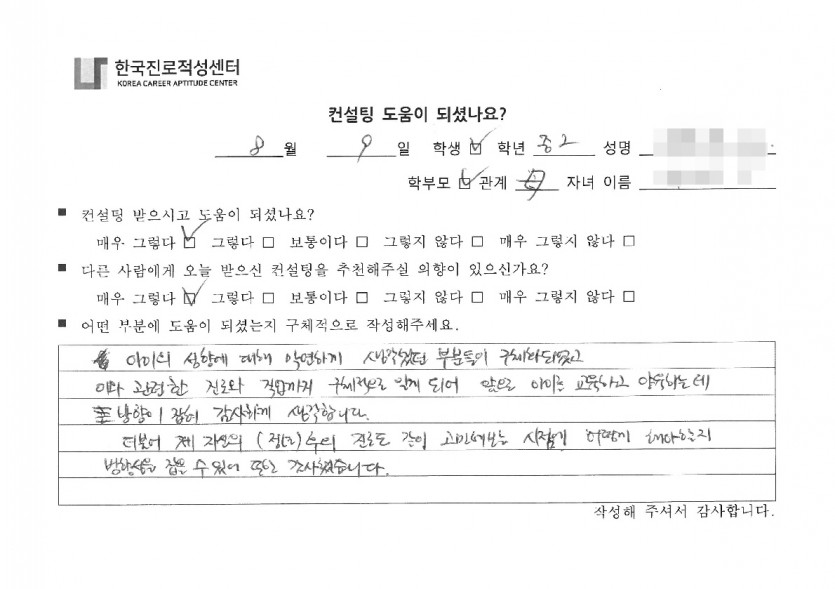 한국진로적성센터
KOREA CAREER APTITUDE CENTER
컨설팅 도움이 되셨나요?
8 월 9 일 학생 ☑ 학년 중2 성명
학부모 ☑ 관계 모 자녀 이름
■ 컨설팅 받으시고 도움이 되셨나요?
매우 그렇다 ☑ 그렇다 □ 보통이다 □ 그렇지 않다 □ 매우 그렇지 않다 □
■ 다른 사람에게 오늘 받으신 컨설팅을 추천해주실 의향이 있으신가요?
매우 그렇다 ☑ 그렇다 □ 보통이다 □ 그렇지 않다 □ 매우 그렇지 않다 □
■ 어떤 부분에 도움이 되셨는지 구체적으로 작성해주세요.
아이의 성향에 대해 막연하게 생각했던 부분들이 구체화되었고
이와 관련한 진로와 직업까지 구체적으로 알게 되어 앞으로 아이를 교육하고 양육하는데
방향이 잡혀 감사하게 생각합니다.
더불어 제 자신의 진로도 같이 고민해보는 시점에 어떻게 해야하는지
방향성을 잡을 수 있어 또한 감사했습니다.
작성해 주셔서 감사합니다.